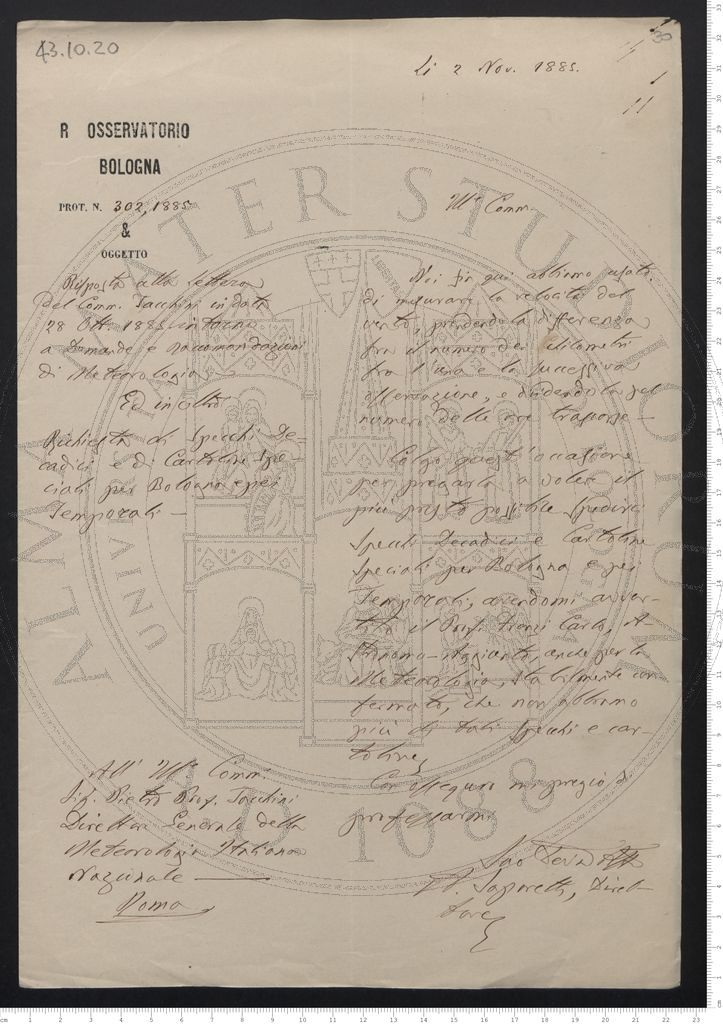 43.10.20
30
Li 2 Nov. 1885.
R OSSERVATORIO
BOLOGNA
PROT. N. 302, 1885
&
OGGETTO
Risposta alla lettera
del Comm. Tacchini in data
28 Ott. 1885 intorno
a Domande e raccomandazioni
di Meteorologia
Ed inoltre
Richiesta di Specchi De-
cadici e di Cartoline Spe-
ciali per Bologna e pei
Temporali —
Ill.e Comm.
Noi fin qui abbiamo usato
di misurare la velocità del
vento, prendendo la differenza
fra il numero dei Chilometri
fra l'una e la successiva
osservazione, e dividendola pel
numero delle ore trascorse —
Colgo quest'occasione
per pregarla a voler il
più presto possibile spedirci
Specchi Decadici e Cartoline
speciali per Bologna e pei
Temporali, avendomi avver-
tito il Prof. Carlo, A-
stronomo-Aggiunto, anche per la
Meteorologia, stabilmente con-
fermato, che non abbiamo
più di tali Specchi e car-
toline
Con ossequio mi pregio di
professarmi
Suo Dev.
Saporetti, Diret-
tore
All' Ill.e Comm.
Sig. Pietro Prof. Tacchini
Direttore Generale della
Meteorologia Italiana
Nazionale —
Roma
ALMA MATER STUDIORUM
A.D. 1088